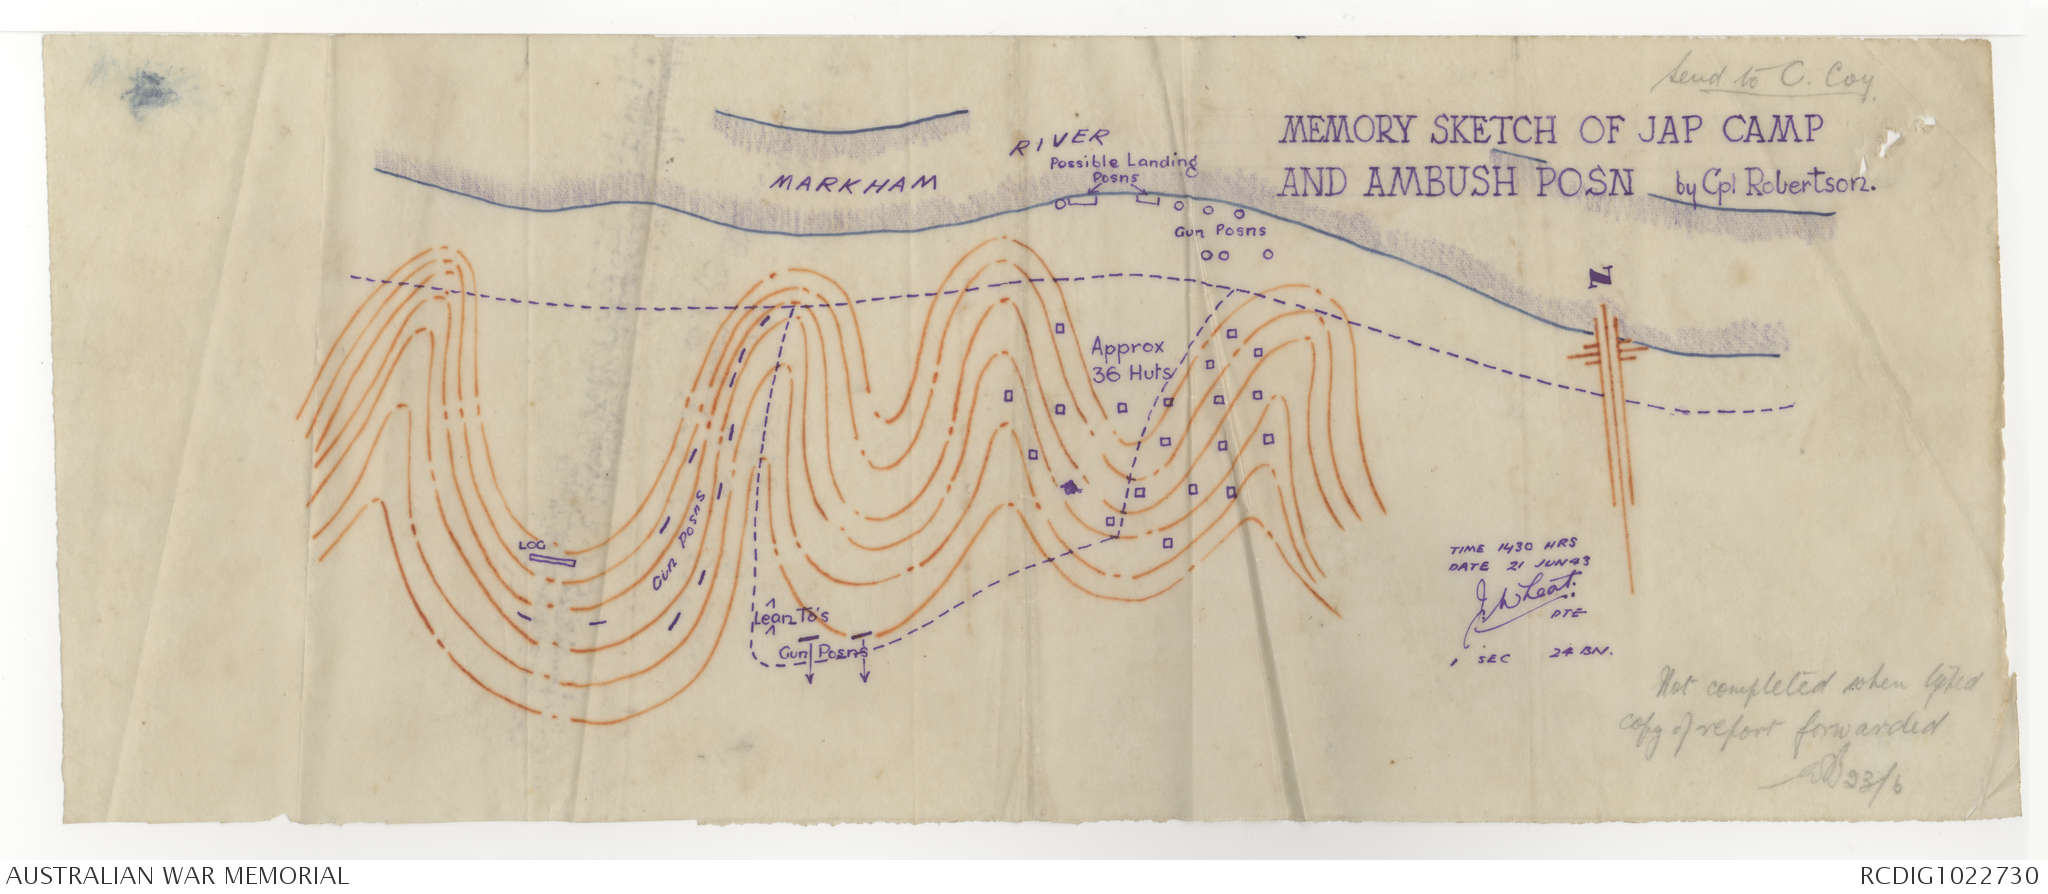 Send to C. Coy.
MEMORY SKETCH OF JAP CAMP
AND AMBUSH POSN by Cpl Robertson.
RIVER
MARKHAM
Possible Landing
Posns
Gun Posns
N
Approx
36 Huts
LOG
Gun Posns
Lean To's
Gun Posns
TIME 1430 HRS
DATE 21 JUN 43
PTE
SEC 24 BN.
Not completed when typed
copy of report forwarded
23/6
AUSTRALIAN WAR MEMORIAL
RCDIG1022730